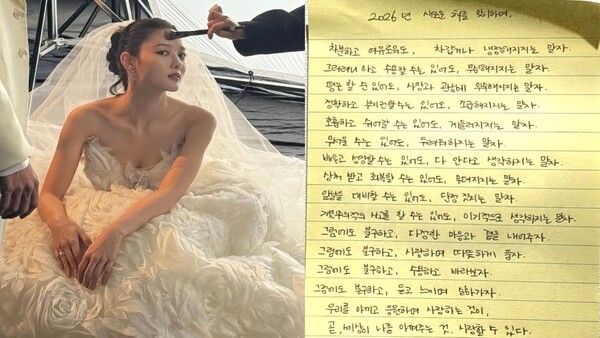 2026년 새로운 해를 맞이하며,
차분하고 여유로워도, 차갑거나 냉정해지지는 말자.
그러려니 하고 수용할 수는 있어도, 무뎌해지지는 말자.
평온 할 순 있어도, 사랑과 관심에 무뎌해지지는 말자.
정확하고 부지런할 수는 있어도, 조급해지지는 말자.
호흡하고 쉬어갈 수는 있어도, 게을러지지는 말자.
무너질 수는 있어도, 두려워하지는 말자.
배우고 성장할 수는 있어도, 다 안다고 생각하지는 말자.
상처 받고 회복할 수는 있어도, 무뎌지지는 말자.
앞날을 대비할 수는 있어도, 단정 짓지는 말자.
개인주의적 사고를 할 수는 있어도, 이기적으로 생각하지는 말자.
그럼에도 불구하고, 다정한 마음과 곁을 내어주자.
그럼에도 불구하고, 사랑하며 따뜻하게 품자.
그럼에도 불구하고, 수용하고 바라보자.
그럼에도 불구하고, 듣고 느끼며 살아가자.
우리를 아끼고 응원하며 사랑하는 것이,
곧, 세상이 나를 아껴주는 것. 사랑할 수 있다.